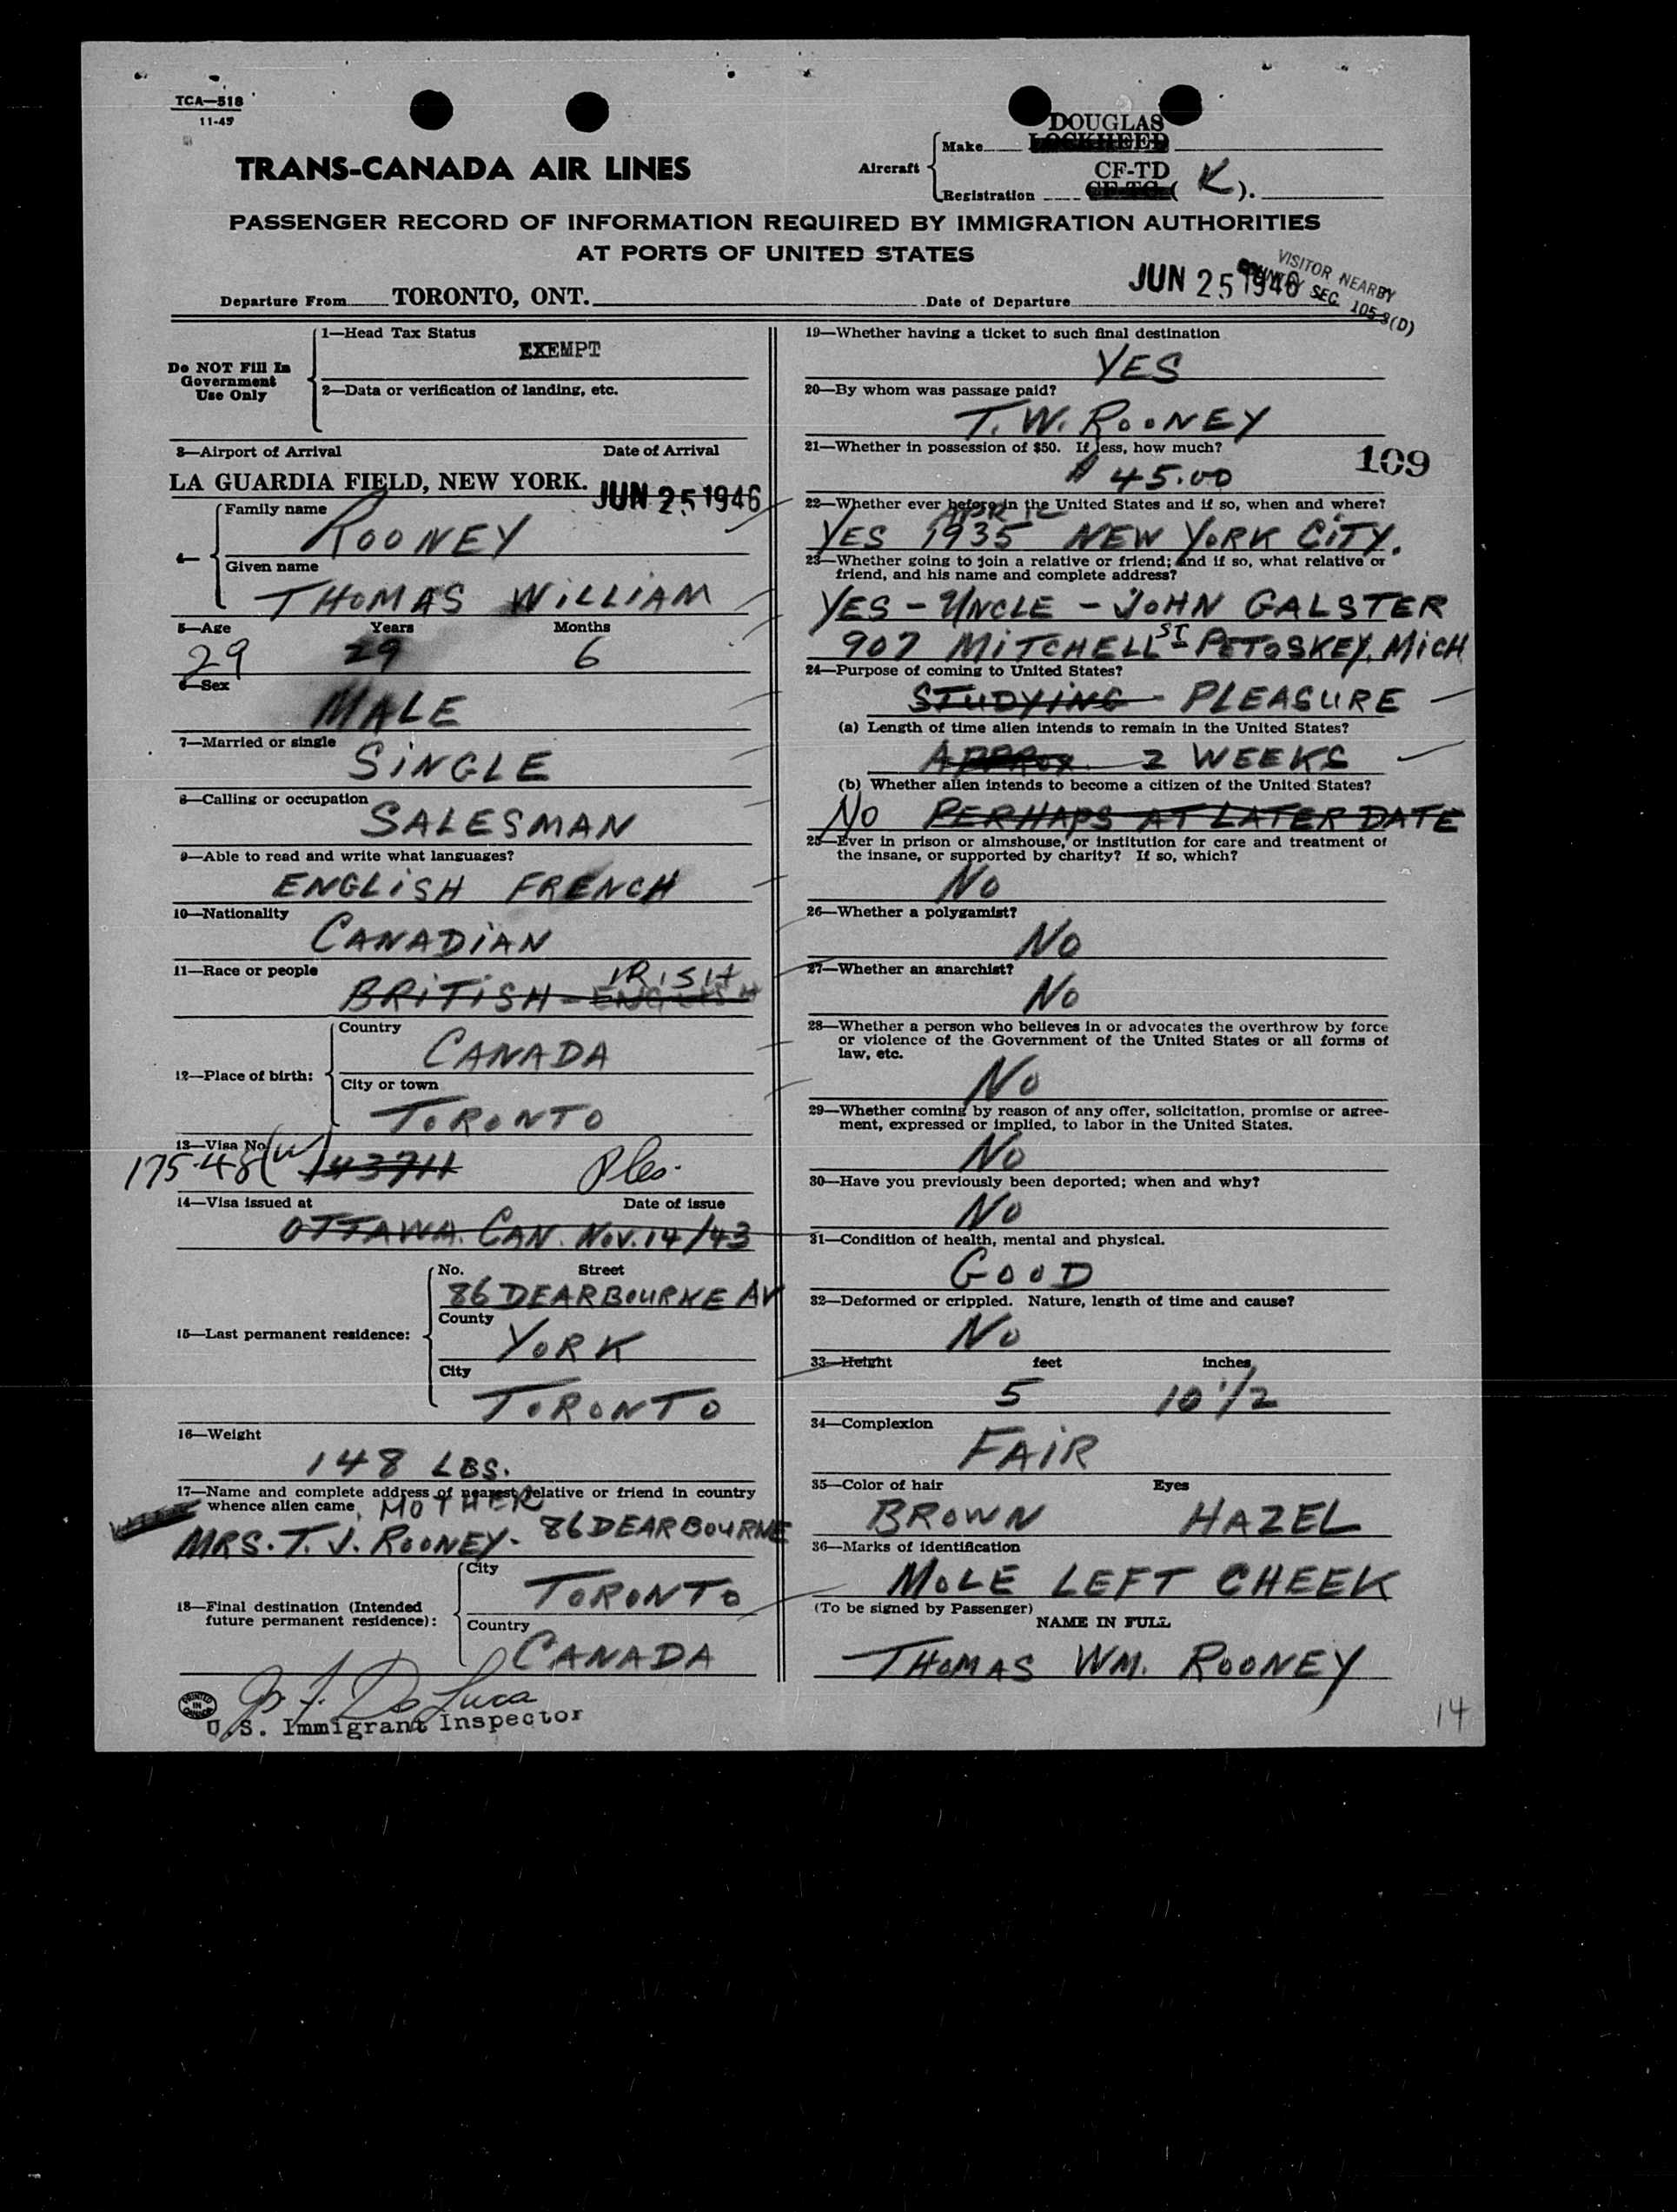 TCA—518
11-45
TRANS-CANADA AIR LINES
Aircraft
Make
DOUGLAS
LOCKHEED
Registration
CF-TD
CF-TC ( K ).
PASSENGER RECORD OF INFORMATION REQUIRED BY IMMIGRATION AUTHORITIES
AT PORTS OF UNITED STATES
Departure From TORONTO, ONT. Date of Departure JUN 25 1946
VISITOR NEARBY
COUNTRY SEC. 105-3(D)
Do NOT Fill In
Government
Use Only
1—Head Tax Status
EXEMPT
2—Data or verification of landing, etc.
3—Airport of Arrival Date of Arrival
LA GUARDIA FIELD, NEW YORK. JUN 25 1946
4—
Family name
ROONEY
Given name
THOMAS WILLIAM
5—Age Years Months
29 29 6
6—Sex
MALE
7—Married or single
SINGLE
8—Calling or occupation
SALESMAN
9—Able to read and write what languages?
ENGLISH FRENCH
10—Nationality
CANADIAN
11—Race or people
IRISH
BRITISH - ENGLISH
12—Place of birth:
Country
CANADA
City or town
TORONTO
13—Visa No.
175-48(W) 143711
14—Visa issued at Date of issue
OTTAWA. CAN. NOV. 14/43
15—Last permanent residence:
No. Street
86 DEARBOURNE AV
County
YORK
City
TORONTO
16—Weight
148 LBS.
17—Name and complete address of nearest relative or friend in country
whence alien came
MOTHER
MRS. T. J. ROONEY - 86 DEARBOURNE
18—Final destination (Intended
future permanent residence):
City
TORONTO
Country
CANADA
PRINTED
IN
CANADA
De Luca
U.S. Immigrant Inspector
19—Whether having a ticket to such final destination
YES
20—By whom was passage paid?
T. W. ROONEY
21—Whether in possession of $50. If less, how much?
$ 45.00
109
22—Whether ever before in the United States and if so, when and where?
APRIL
YES 1935 NEW YORK CITY.
23—Whether going to join a relative or friend; and if so, what relative or
friend, and his name and complete address?
YES - UNCLE - JOHN GALSTER
907 MITCHELL ST - PETOSKEY, MICH
24—Purpose of coming to United States?
STUDYING - PLEASURE
(a) Length of time alien intends to remain in the United States?
APPROX. 2 WEEKS
(b) Whether alien intends to become a citizen of the United States?
NO PERHAPS AT LATER DATE
25—Ever in prison or almshouse, or institution for care and treatment of
the insane, or supported by charity? If so, which?
NO
26—Whether a polygamist?
NO
27—Whether an anarchist?
NO
28—Whether a person who believes in or advocates the overthrow by force
or violence of the Government of the United States or all forms of
law, etc.
NO
29—Whether coming by reason of any offer, solicitation, promise or agree-
ment, expressed or implied, to labor in the United States.
NO
30—Have you previously been deported; when and why?
NO
31—Condition of health, mental and physical.
GOOD
32—Deformed or crippled. Nature, length of time and cause?
NO
33—Height feet inches
5 10 1/2
34—Complexion
FAIR
35—Color of hair Eyes
BROWN HAZEL
36—Marks of identification
MOLE LEFT CHEEK
(To be signed by Passenger)
NAME IN FULL
THOMAS WM. ROONEY
14